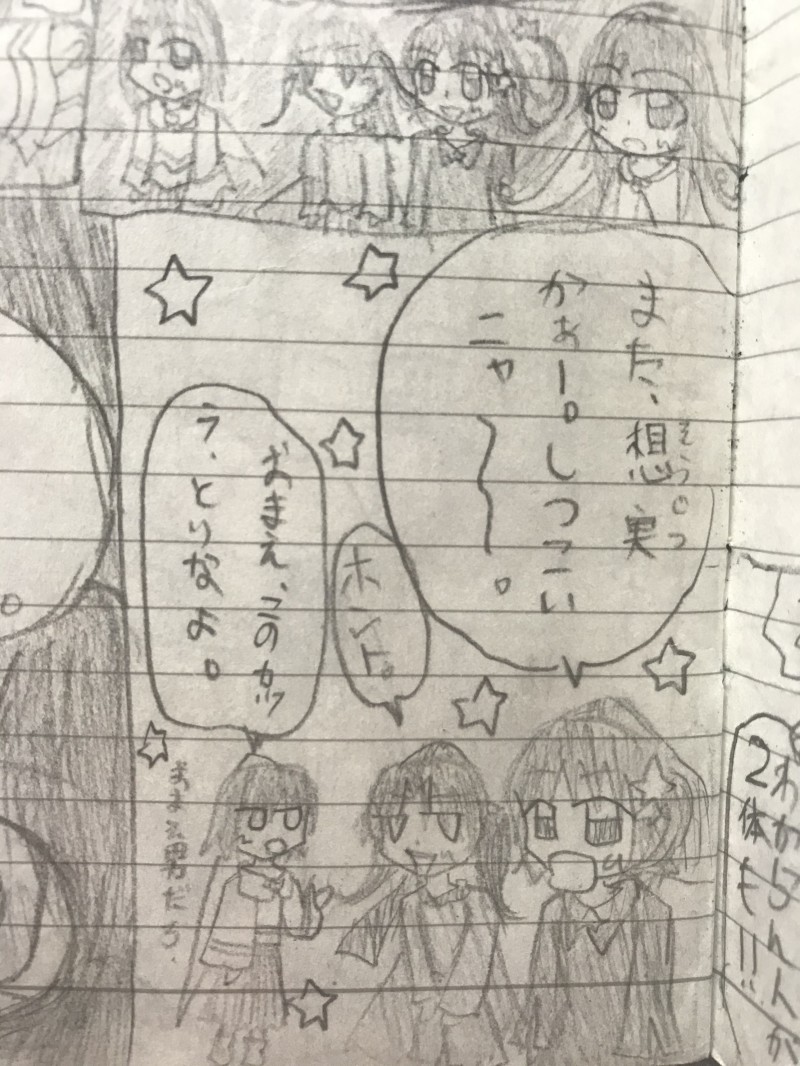 また、想実
そうじつ
かぁー。しつこい
ニャ〜。
ホント。
おまえ、このカツ
ラ、とりなよ。
おまえ男だろ、
わからん人が
2体も!!